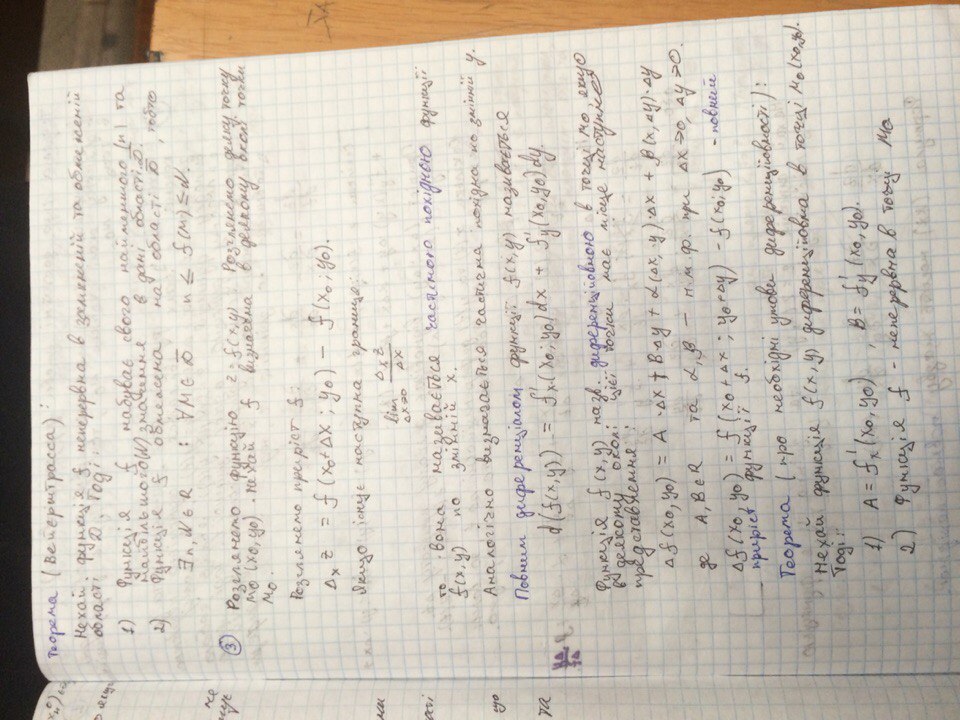 Теорема (Вейєрштрасса):
Нехай функція f неперервна в замкненій та обмеженій
області D̄. Тоді:
1) Функція f набуває свого найменшого (n) та
найбільшого (N) значення в дані області D̄.
2) Функція f обмежена на області D̄, тобто
∃ n, N ∈ R : ∀M ∈ D̄ n ≤ f(M) ≤ N.
3. Розглянемо функцію z = f(x,y). Розглянемо деяку точку
M0 (x0, y0). Нехай f визначена в деякому околі точки
M0.
Розглянемо приріст f:
Δx z = f(x0+Δx ; y0) – f(x0 ; y0).
Якщо існує наступна границя:
lim Δx→0 Δx z / Δx
то вона називається частиною похідною функції
f(x,y) по змінній x.
Аналогічно визначається частична похідна по змінній y.
Повним диференціалом функції f(x,y) називається
d(f(x,y)) = f'x (x0 ; y0) dx + f'y (x0, y0) dy.
Функція f(x,y) назв. диференційовною в точці M0, якщо
в деякому околі цієї точки має місце наступне
представлення:
Δf(x0, y0) = A · Δx + B · Δy + α(Δx, y) · Δx + β(x, Δy) · Δy
де A, B ∈ R та α, β – н.м.ф. при Δx→0, Δy→0.
Δf(x0, y0) = f(x0 + Δx ; y0 + Δy) – f(x0 ; y0) – повний
приріст функції f.
Теорема (про необхідні умови диференційовності):
Нехай функція f(x,y) диференційовна в точці M0(x0, y0).
Тоді:
1) A = f'x (x0, y0) , B = f'y (x0, y0).
2) Функція f – неперервна в точці M0